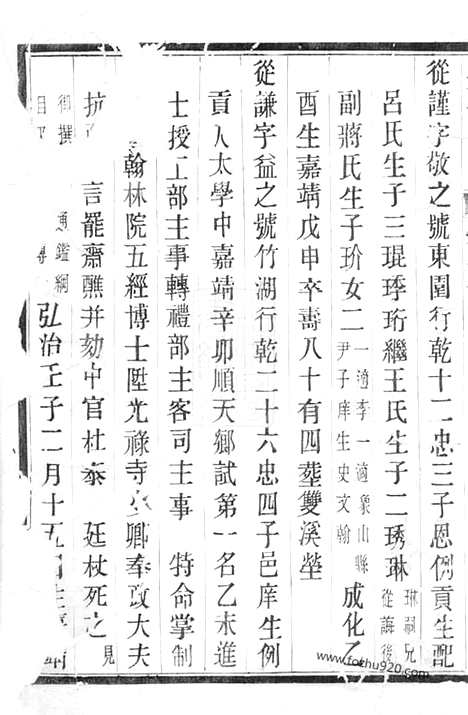 從謹字敬之號東園行乾十二忠三子恩例貢生配
呂氏生子三琨季珩繼王氏生子二琇琳琳嗣兄從誨後
副蔣氏生子玠女二一適李一適象山縣尹子庠生史文翰 成化乙
酉生嘉靖戊申卒壽八十有四塟雙溪塋
從謙字益之號竹湖行乾二十六忠四子邑庠生例
貢入太學中嘉靖辛卯順天鄉試第一名乙未進
士授工部主事轉禮部主客司主事 特命掌制
翰林院五經博士陞光祿寺少卿奉政大夫
抗 言罷齋醮并劾中官杜泰 廷杖死之見
御撰 通鑑綱目 弘治壬子二月十五
www.fozhu920.com